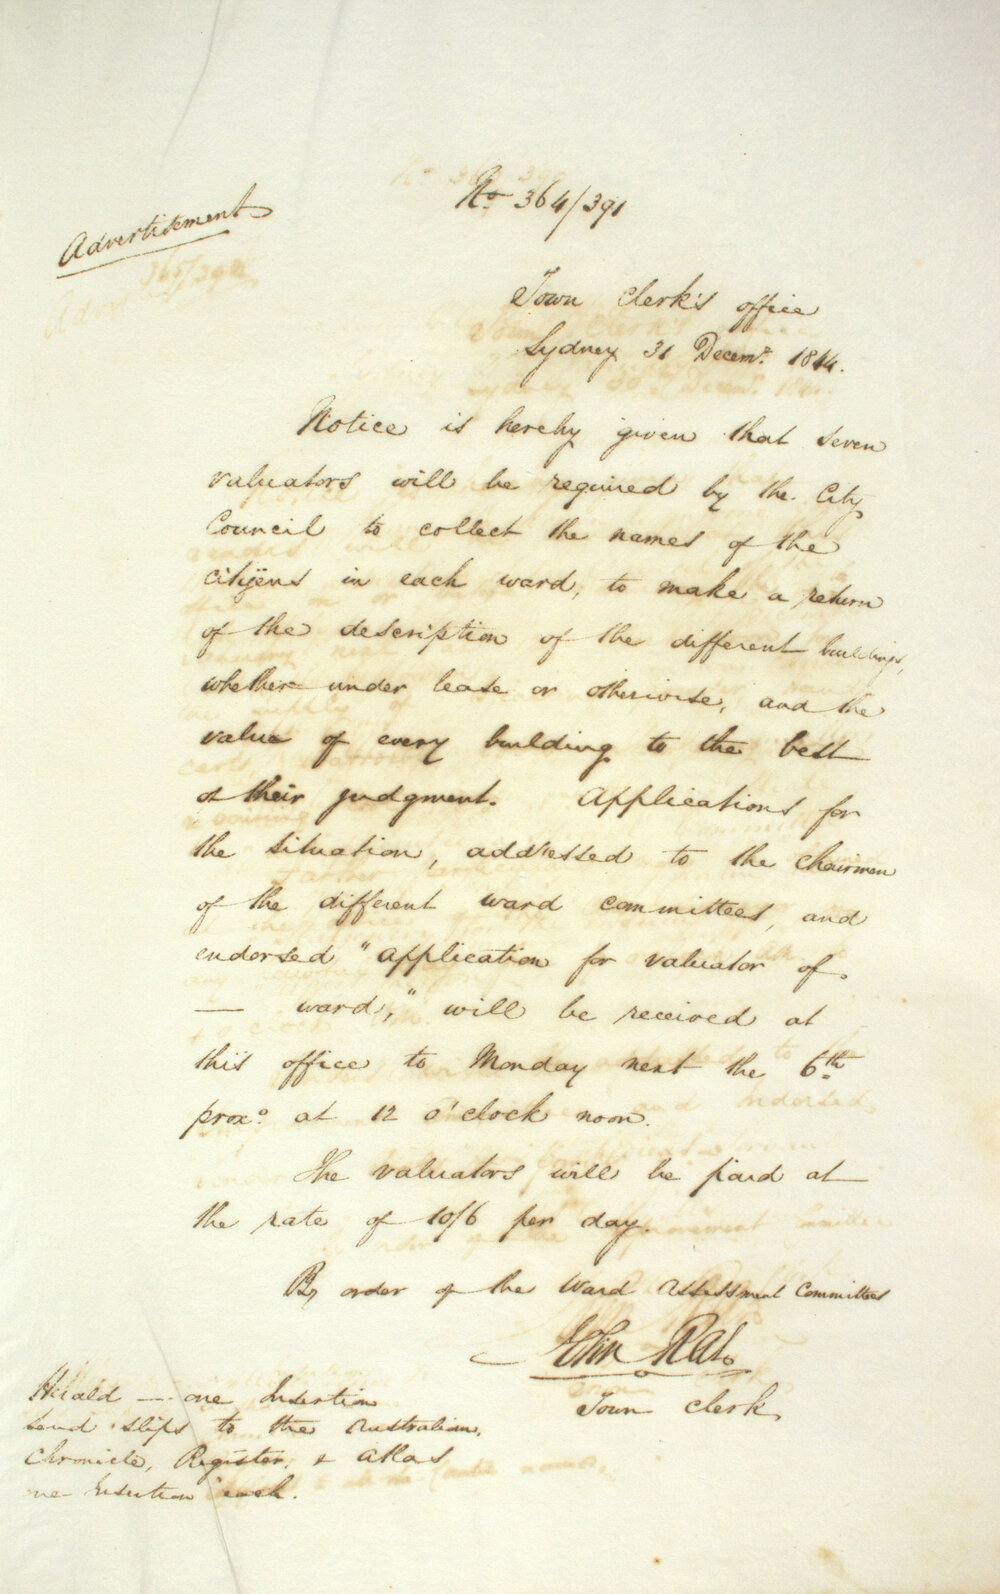 No 364/391
Advertisement
Town Clerk's office
Sydney 31 Decemr. 1844.
Notice is hereby given that seven
valuators will be required by the City
Council to collect the names of the
citizens in each ward, to make a return
of the description of the different buildings,
whether under lease or otherwise, and the
value of every building to the best
of their judgment. Applications for
the situation, addressed to the chairmen
of the different ward committees, and
endorsed "application for valuator of
— ward," will be received at
this office to Monday next the 6th
proxo. at 12 o'clock noon.
The valuators will be paid at
the rate of 10/6 per day.
By order of the Ward Assessment Committees
John Rae
Town Clerk
Herald — one Insertion
send slips to the Australian,
Chronicle, Register, & Atlas
one Insertion each.